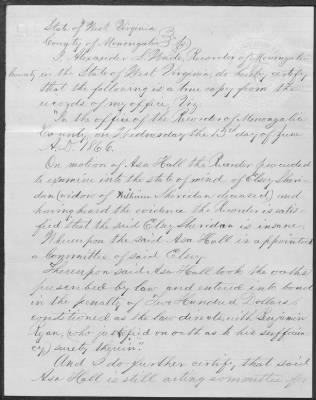 State of West Virginia }
County of Monongalia } SS
I, Alexander L. Wade, Recorder of Monongalia
County in the State of West Virginia, do hereby certify
that the following is a true copy from the
records of my office, Viz:
"In the office of the Recorder of Monongalia
County, on Wednesday the 13th day of June
A.D. 1866.
On motion of Asa Hall the Recorder proceeded
to examine into the state of mind of Elsey Sheri-
dan (widow of William Sheridan deceased) and
having heard the evidence the Recorder is satis-
fied that the said Elsey Sheridan is insane.
Whereupon the said Asa Hall is appointed
a Committee of said Elsey.
Thereupon said Asa Hall took the oaths
prescribed by law and entered into bond
in the penalty of Two Hundred Dollars,
conditioned as the law directs with Benjamin
Ryan, (who justified on oath as to his sufficien
cy) surety therein".
And I do further certify, that said
Asa Hall is still acting committee for